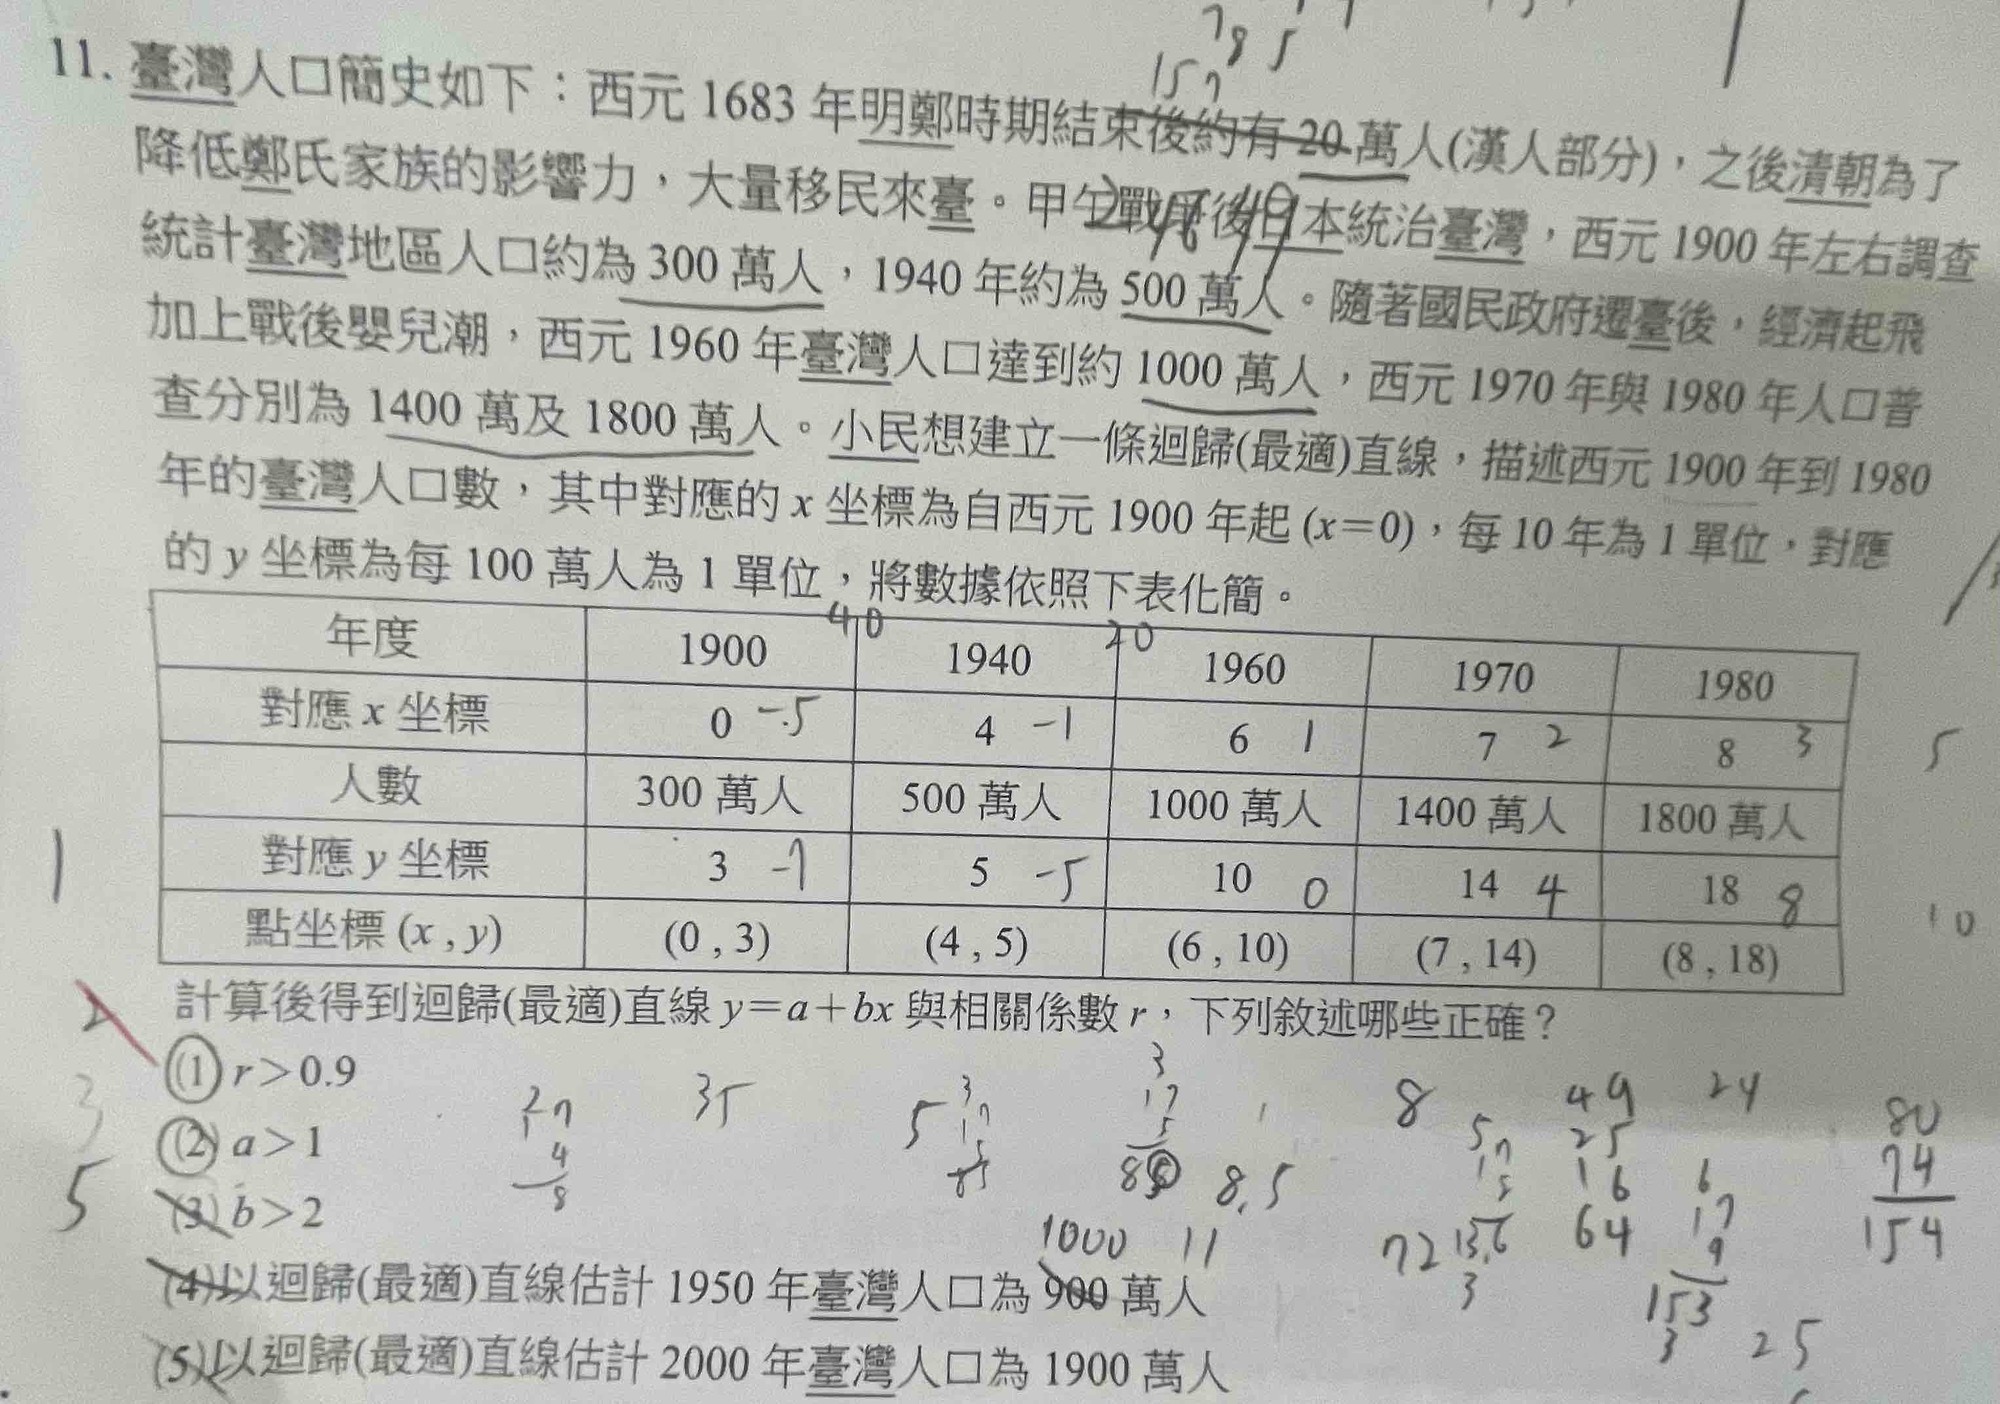 785
157
11. 臺灣人口簡史如下：西元 1683 年明鄭時期結束後約有 20 萬人(漢人部分)，之後清朝為了
降低鄭氏家族的影響力，大量移民來臺。甲午戰爭後日本統治臺灣，西元 1900 年左右調查
統計臺灣地區人口約為 300 萬人，1940 年約為 500 萬人。隨著國民政府遷臺後，經濟起飛
加上戰後嬰兒潮，西元 1960 年臺灣人口達到約 1000 萬人，西元 1970 年與 1980 年人口普
查分別為 1400 萬及 1800 萬人。小民想建立一條迴歸(最適)直線，描述西元 1900 年到 1980
年的臺灣人口數，其中對應的 x 坐標為自西元 1900 年起 (x＝0)，每 10 年為 1 單位，對應
的 y 坐標為每 100 萬人為 1 單位，將數據依照下表化簡。
40 20
年度 1900 1940 1960 1970 1980
對應 x 坐標 0 -5 4 -1 6 1 7 2 8 3 5
人數 300 萬人 500 萬人 1000 萬人 1400 萬人 1800 萬人
對應 y 坐標 3 -7 5 -5 10 0 14 4 18 8 10
點坐標 (x , y) (0 , 3) (4 , 5) (6 , 10) (7 , 14) (8 , 18)
計算後得到迴歸(最適)直線 y＝a＋bx 與相關係數 r，下列敘述哪些正確？
(1) r＞0.9
(2) a＞1
(3) b＞2
(4)以迴歸(最適)直線估計 1950 年臺灣人口為 900 萬人
(5)以迴歸(最適)直線估計 2000 年臺灣人口為 1900 萬人
35
8.5
1000 11
8
72
49
25
16
64
24
153
3
25
80
74
154